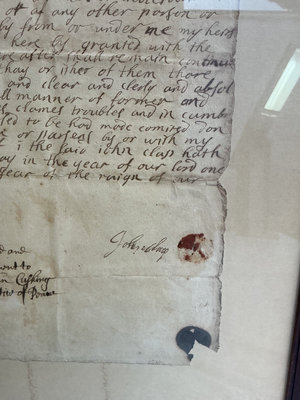 of or any other porson or
by from or under me my heirs
here by granted with the
ere after shall remain continue
thay or ither of them there
and clear and clerly and absol
ll manner of former and
clames troubles and in cumb
red to be had mode comited don
or parseal by or with my
I the said iohn clap hath
ay in the year of our lord one
year of the raign of our
John Clap
d and
went to
n Cushing